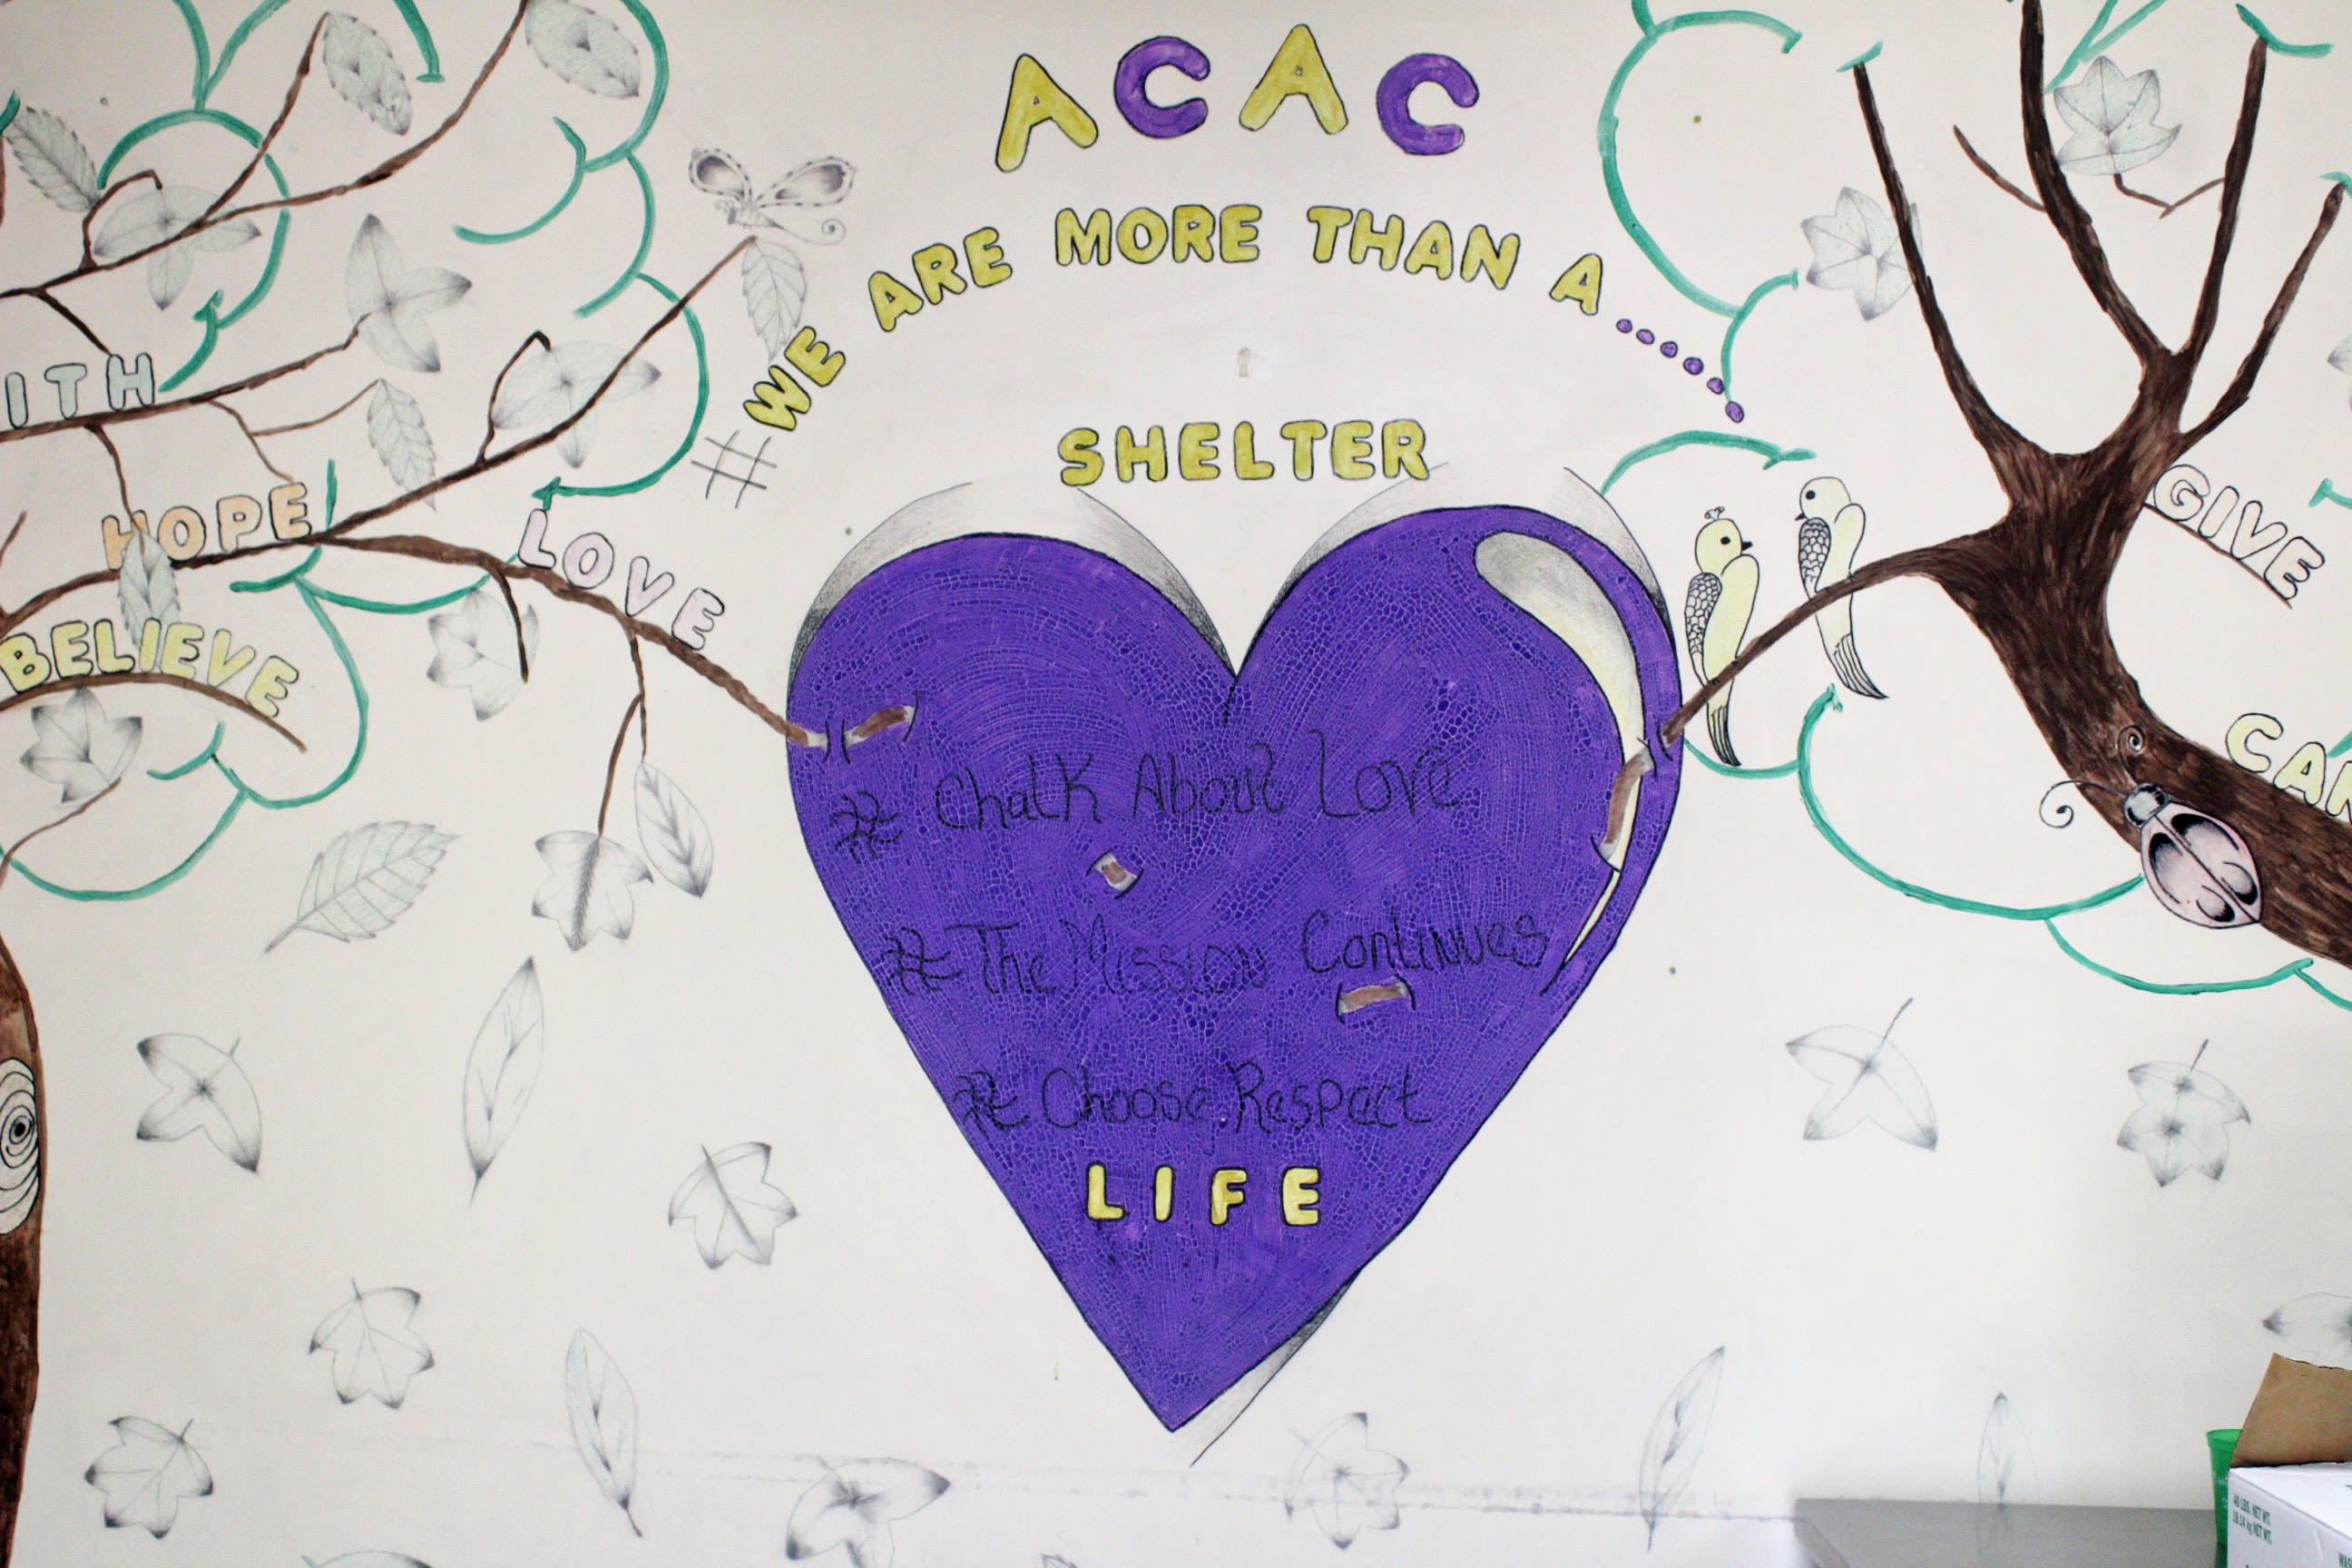 ACAC
#WE ARE MORE THAN A......
SHELTER
ITH
HOPE
LOVE
BELIEVE
GIVE
CAR
# Chalk About Love
# The Mission Continues
# Choose Respect
LIFE
40 LBS. NET WT.
18.14 kg NET WT.